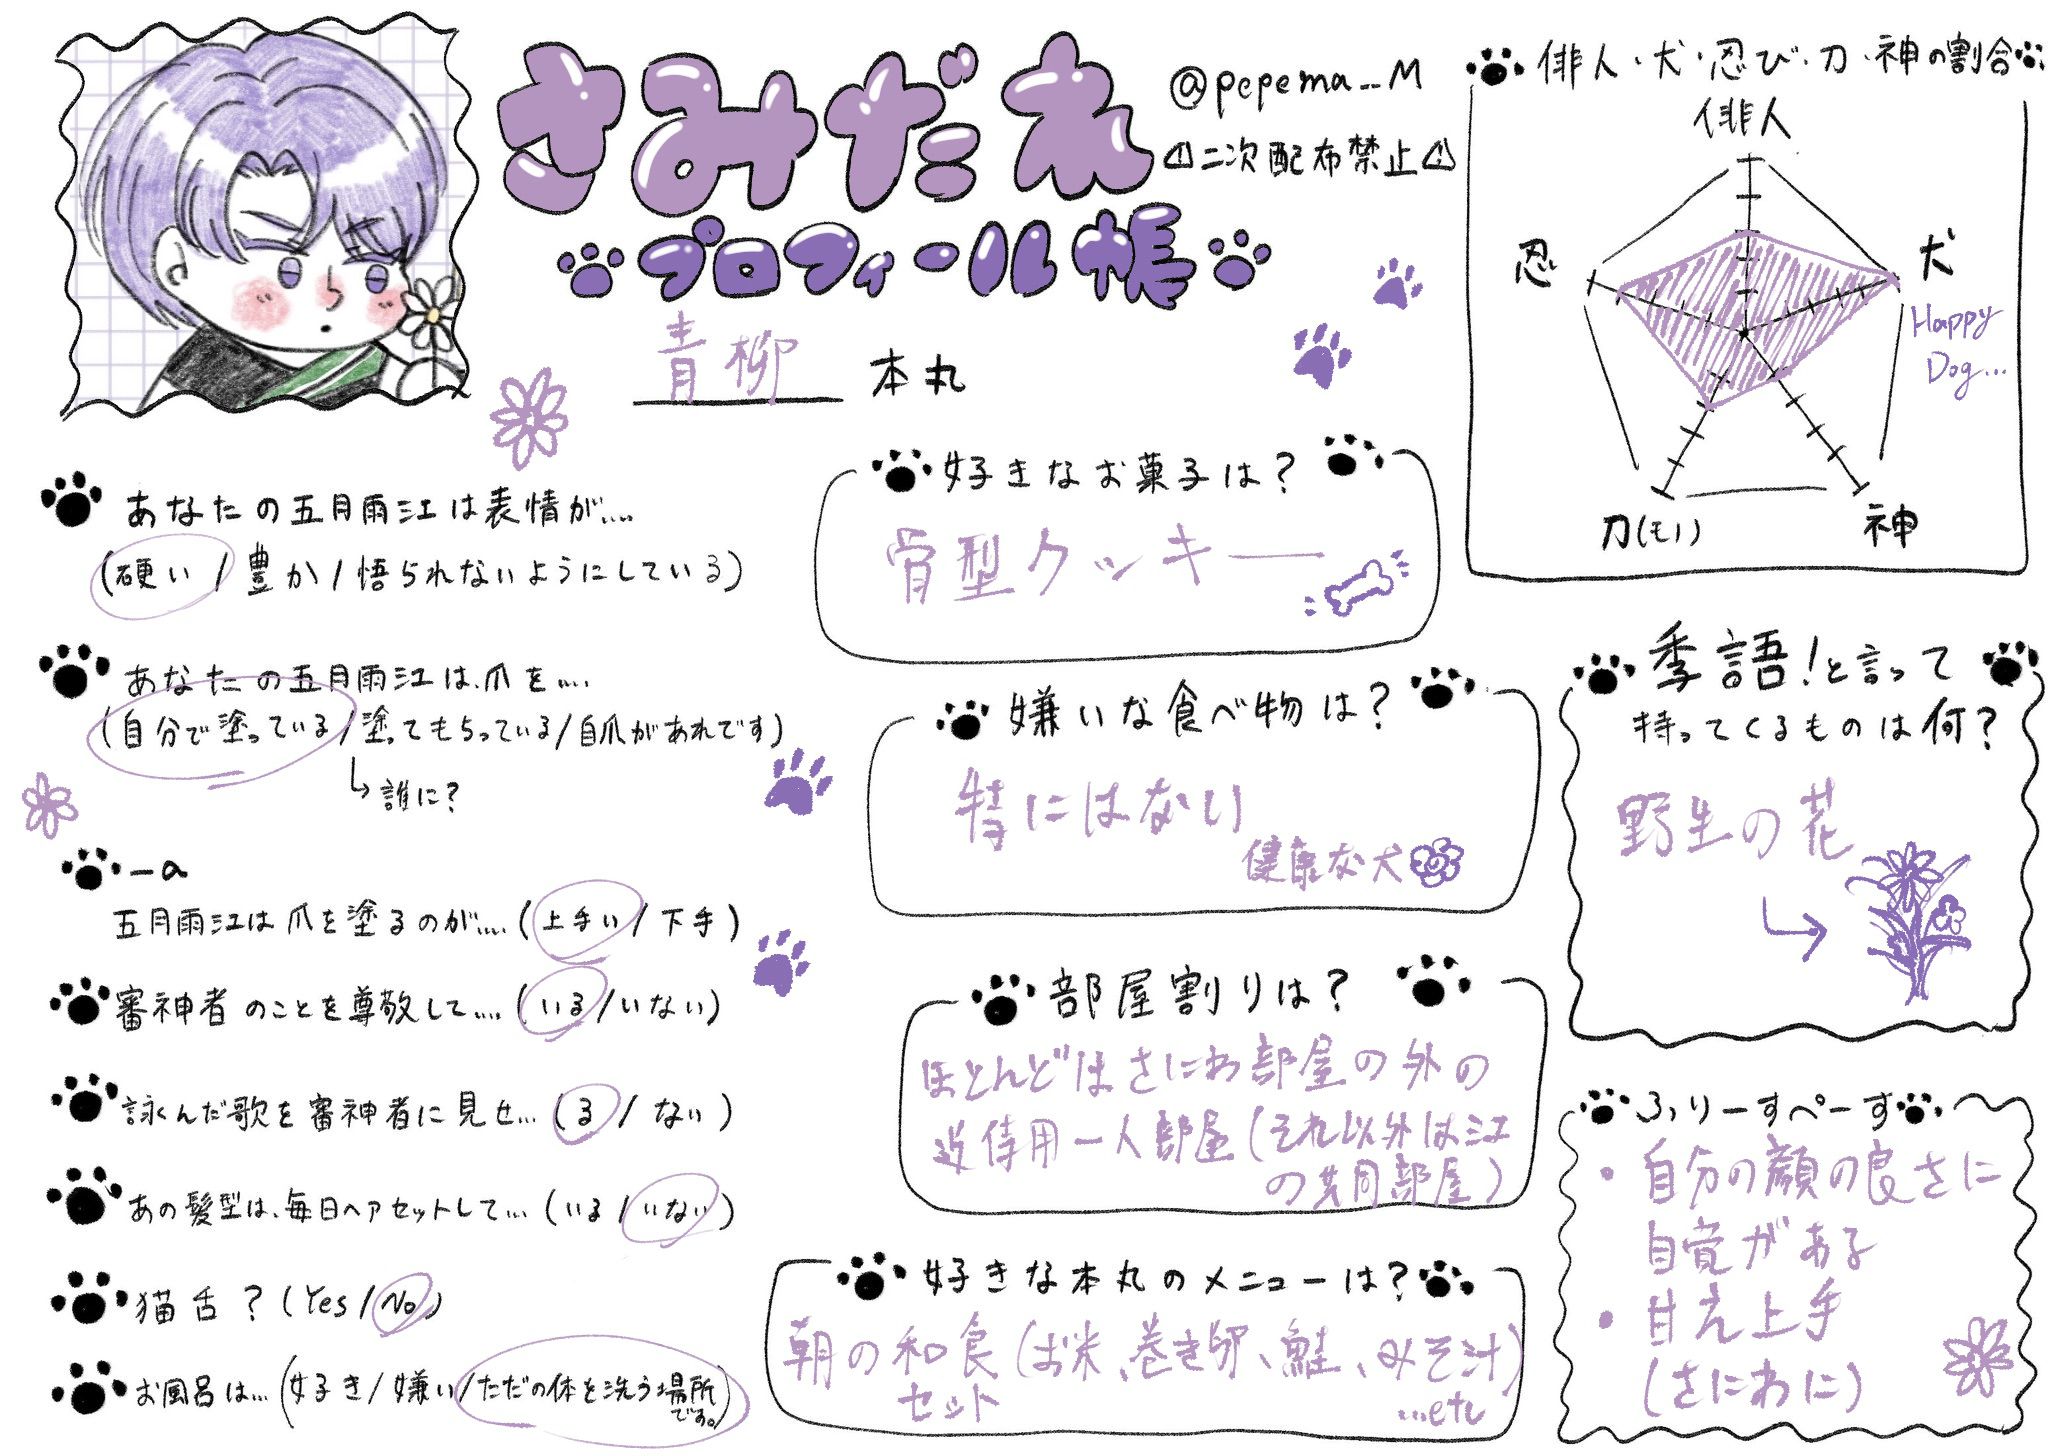 さみだれ
プロフィール帳
@pepema__M
⚠二次配布禁止⚠
青柳 本丸
あなたの五月雨江は表情が....
(硬い/豊か/悟られないようにしている)
あなたの五月雨江は、爪を....
(自分で塗っている/塗ってもらっている/自爪があれです)
↳誰に?
五月雨江は爪を塗るのが....(上手い/下手)
審神者のことを尊敬して....(いる/いない)
詠んだ歌を審神者に見せ...(る/ない)
あの髪型は、毎日ヘアセットして...(いる/いない)
猫舌?(Yes/No)
お風呂は...(好き/嫌い/ただの体を洗う場所
です。)
好きなお菓子は?
骨型クッキー
嫌いな食べ物は?
特にはない
健康な犬
部屋割りは?
ほとんどはさにわ部屋の外の
近侍用一人部屋(それ以外は江
の共同部屋)
好きな本丸のメニューは?
朝の和食(お米、巻き卵、鮭、みそ汁)
セット
...etc
俳人・犬・忍び・刀・神の割合
俳人
忍
犬
Happy
Dog...
刀(モノ)
神
季語!と言って
持ってくるものは何?
野生の花
ふりーすぺーす
・自分の顔の良さに
自覚がある
・甘え上手
(さにわに)